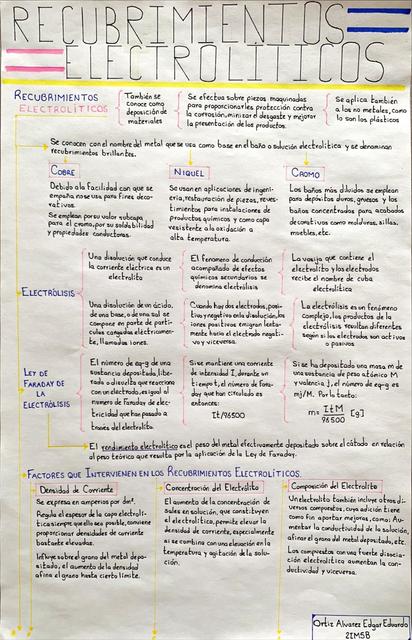 RECUBRIMIENTOS
ELECTROLÍTICOS
RECUBRIMIENTOS
ELECTROLÍTICOS
También se
conoce como
deposición de
materiales
Se efectua sobre piezas maquinadas
para proporcionarles protección contra
la corrosión, minimizar el desgaste y mejorar
la presentación de los productos.
Se aplica también
a los no metales, como
lo son los plásticos
Se conocen con el nombre del metal que se usa como base en el baño o solución electrolítica y se denominan
recubrimientos brillantes.
COBRE
Debido a la facilidad con que se
empaña no se usa para fines deco-
rativos.
Se emplean por su valor subcapa
para el cromo, por su soldabilidad
y propiedades conductoras.
NIQUEL
Se usan en aplicaciones de ingeni-
ería, restauración de piezas, reves-
timientos para instalaciones de
productos químicos y como capa
resistente a la oxidación a
alta temperatura.
CROMO
Los baños más diluidos se emplean
para depósitos duros, gruesos y los
baños concentrados para acabados
decorativos como molduras, sillas,
muebles, etc.
ELECTRÓLISIS
Una disolución que conduce
la corriente eléctrica es un
electrolito
El fenomeno de conducción
acompañado de efectos
químicos secundarios se
denomina electrólisis
La vasija que contiene el
electrolito y los electrodos
recibe el nombre de cuba
electrolítica
Una disolución de un ácido,
de una base, o de una sal se
compone en parte de partí-
culas cargadas eléctricamen-
te, llamadas iones.
Cuando hay dos electrodos, posi-
tivo y negativo en la disolución, los
iones positivos emigran lenta-
mente hacia el electrodo negati-
vo y viceversa.
La electrólisis es un fenómeno
complejo, los productos de la
electrólisis resultan diferentes
según si los electrodos son activos
o pasivos
LEY DE
FARADAY DE
LA
ELECTRÓLISIS
El número de eq-g de una
sustancia depositada, libe-
rada o disuelta que reacciona
con un electrodo, es igual al
número de Faraday de elec-
tricidad que han pasado a
través del electrolito.
Si se mantiene una corriente
de intensidad I, durante un
tiempo t, el número de Fara-
day que han circulado es
entonces:
It/96500
Si se ha depositado una masa m de
una sustancia de peso atómico M
y valencia j, el número de eq-g es
mj/M. Por lo tanto:
m= ItM/96500 [g]
El rendimiento electrolítico es el peso del metal efectivamente depositado sobre el cátodo en relación
al peso teórico que resulta por la aplicación de la Ley de Faraday.
FACTORES QUE INTERVIENEN EN LOS RECUBRIMIENTOS ELECTROLÍTICOS.
Densidad de Corriente
Se expresa en amperios por dm².
Regula el espesor de la capa electrolí-
tica siempre que ello sea posible, conviene
proporcionar densidades de corriente
bastante elevadas.
Influye sobre el grano del metal depo-
sitado, el aumento de la densidad
afina el grano hasta cierto límite.
Concentración del Electrólito
El aumento de la concentración de
sales en solución, que constituyen
el electrolítico, permite elevar la
densidad de corriente, especialmente
si se combina con una elevación en la
temperatura y agitación de la solu-
ción.
Composición del Electrolito
Un electrolito también incluye otros di-
versos compuestos, cuya adición tiene
como fin aportar mejoras, como: Au-
mentar la conductividad de la solución,
afinar el grano del metal depositado, etc.
Los compuestos con una fuente disocia-
ción electrolítica aumentan la con-
ductividad y viceversa.
Ortiz Alvarez Edgar Eduardo
2IM5B